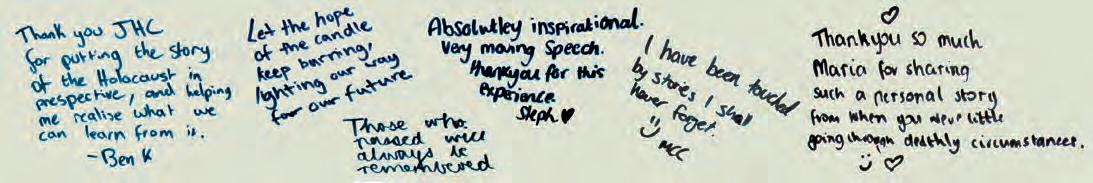 Thank you JHC
for putting the story
of the Holocaust in
prespective, and helping
me realise what we
can learn from it.
-Ben K
Let the hope
of the candle
keep burning,
lighting our way
for our future
Those who
passed will
always be
remembered
Absolutley inspirational.
Very moving speech.
thankyou for this
experience
Steph ♥
I have been touched
by stories I shall
never forget.
MCC
Thankyou so much
Maria for sharing
such a personal story
from when you were little
going through deathly circumstances.